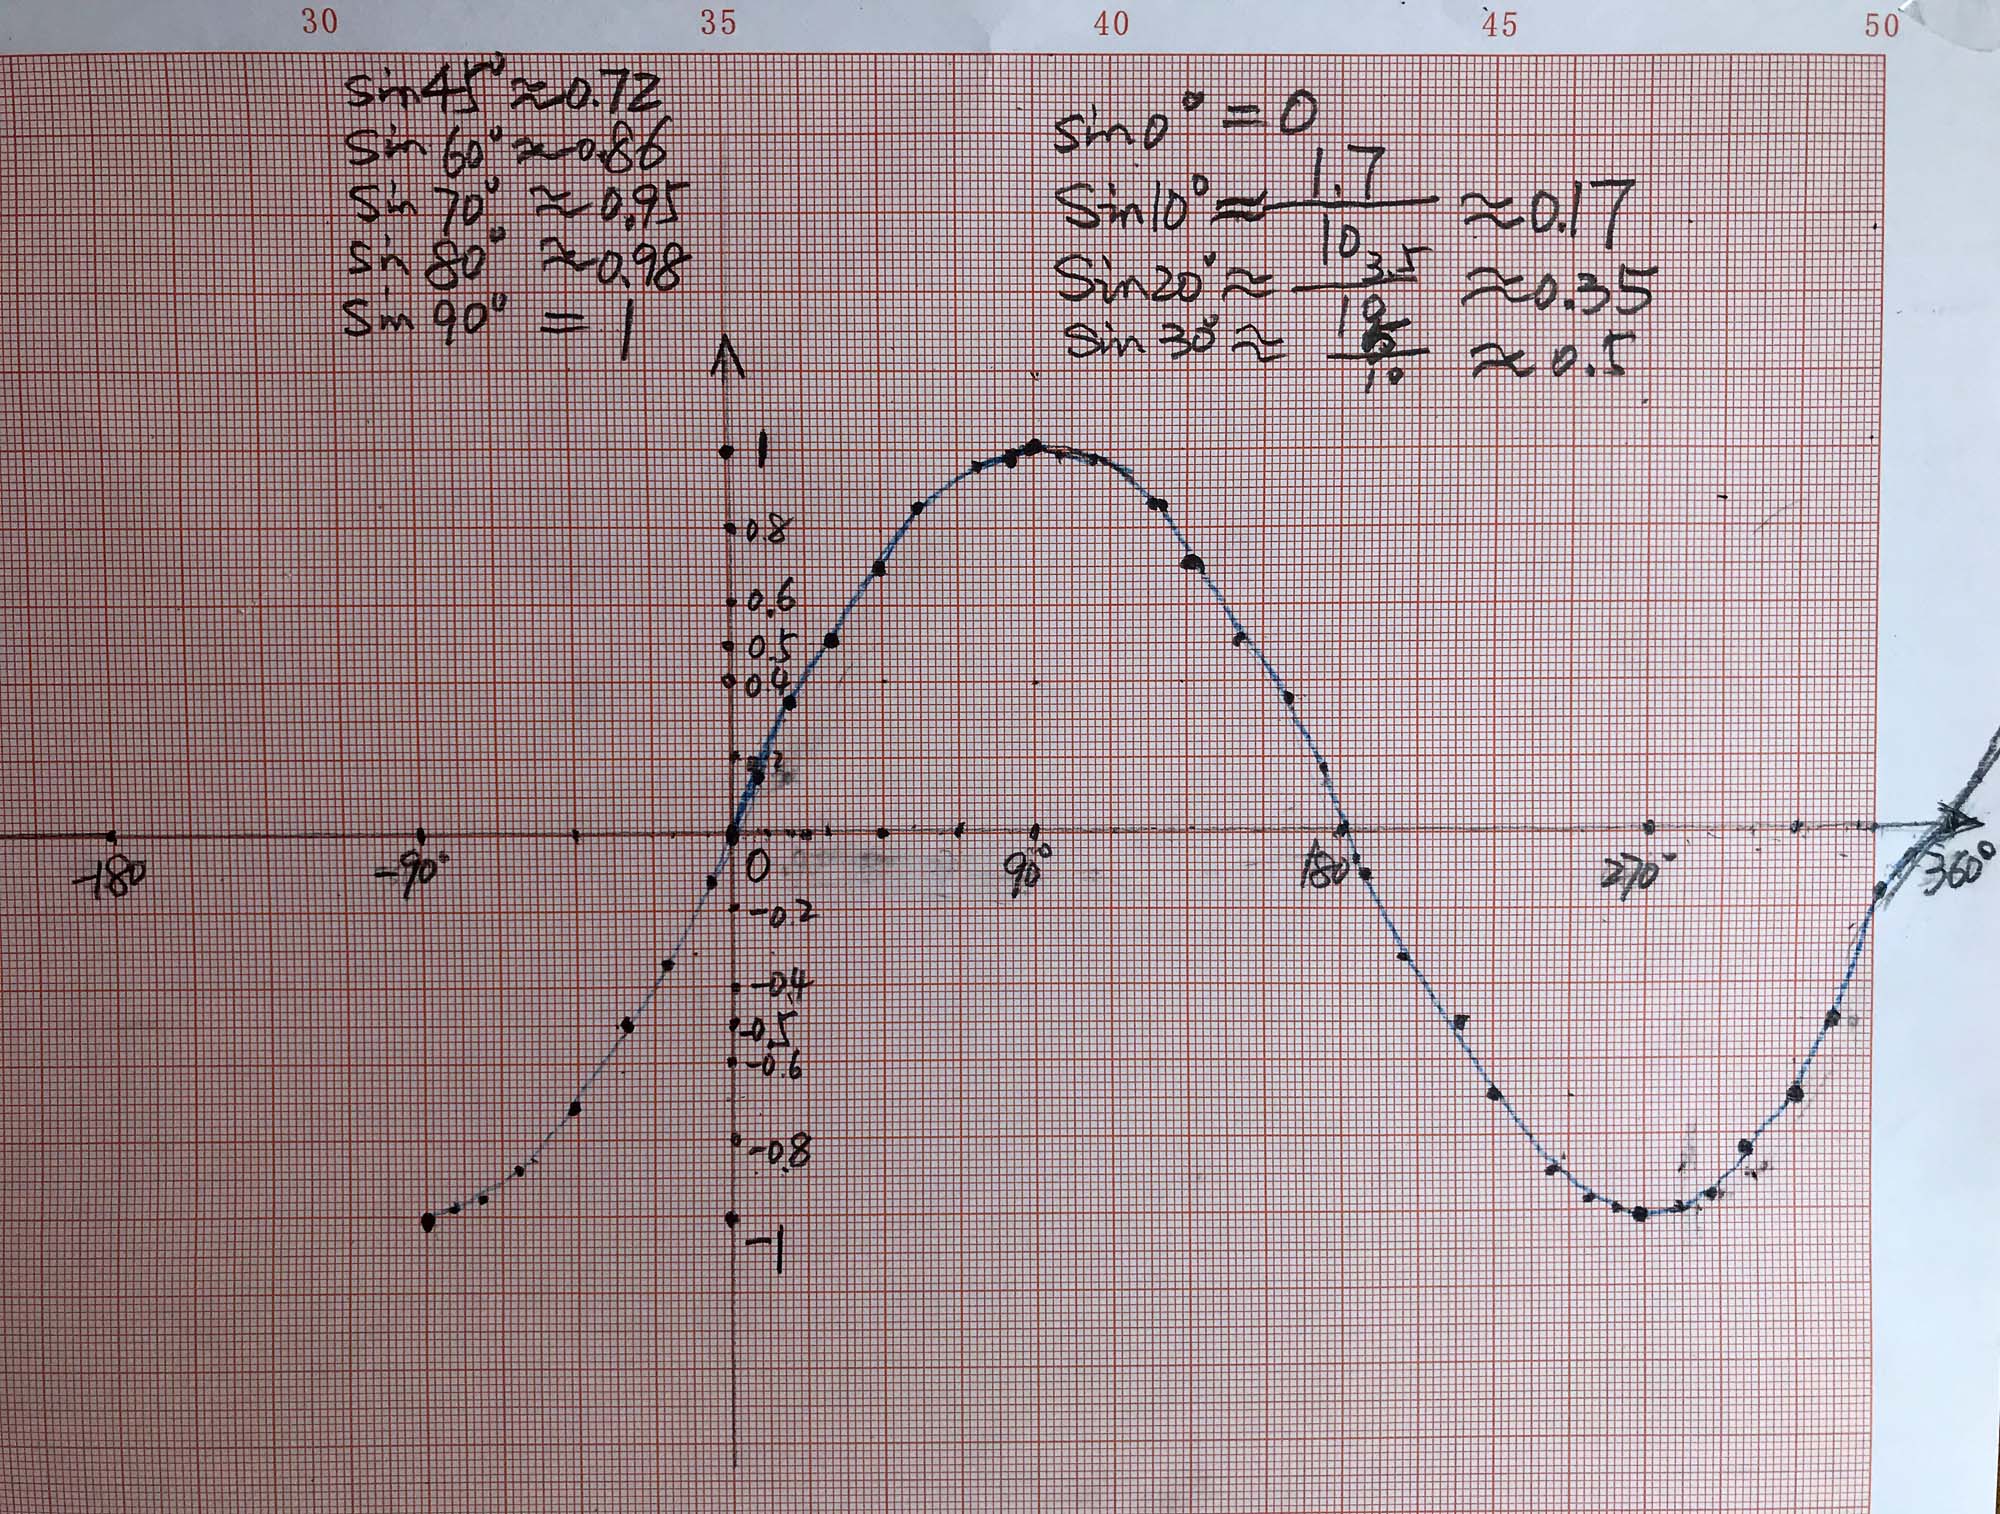 30 35 40 45 50
sin45° ≈0.72
Sin 60° ≈0.86
Sin 70° ≈0.95
Sin 80° ≈0.98
Sin 90° = 1
sin0° = 0
Sin10° ≈ 1.7/10 ≈0.17
Sin20° ≈ 3.5/10 ≈0.35
Sin 30° ≈ 5/10 ≈ 0.5
1
0.8
0.6
0.5
0.4
-180 -90° 0 90° 180 270° 360°
-0.2
-0.4
-0.5
-0.6
-0.8
-1